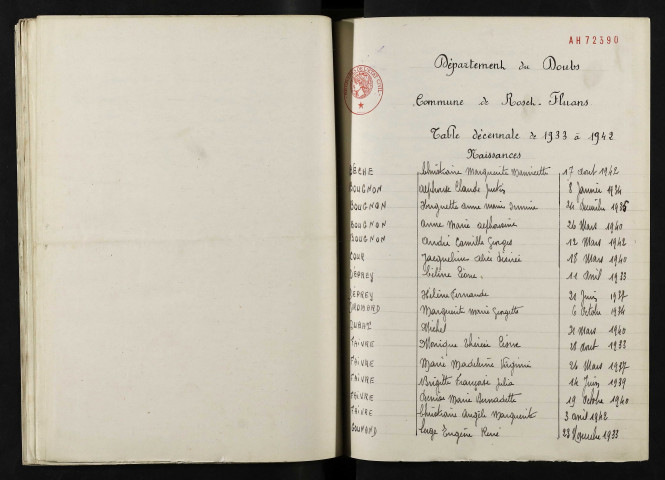 AH 72390
Département du Doubs
Commune de Roset-Fluans
Table décennale de 1933 à 1942
Naissances
BÊCHE Christiane Marguerite Mauricette 17 aout 1942
BOUGNON Alphonse Claude 8 Janvier 1934
BOUGNON Huguette Anne Marie 24 Décembre 1936
BOUGNON Anne Marie Alphonsine 26 Mars 1940
BOUGNON André Camille Georges 12 Mars 1942
COUR Jacqueline Alice Désirée 18 Mars 1940
DÉPREY Céline 11 Avril 1933
DÉPREY Hélène Fernande 21 Juin 1937
Marguerite Marie Georgette 6 Octobre 1934
Michel 21 Mars 1940
FAIVRE Monique Thérèse 28 aout 1933
FAIVRE Marie Madeleine Virginie 26 Mars 1937
FAIVRE Brigitte Françoise Julia 14 Juin 1939
FAIVRE Denise Marie Bernadette 19 Octobre 1940
FAIVRE Christiane Angèle Marguerite 3 avril 1942
GOUNAND Serge Eugène René 23 Novembre 1933